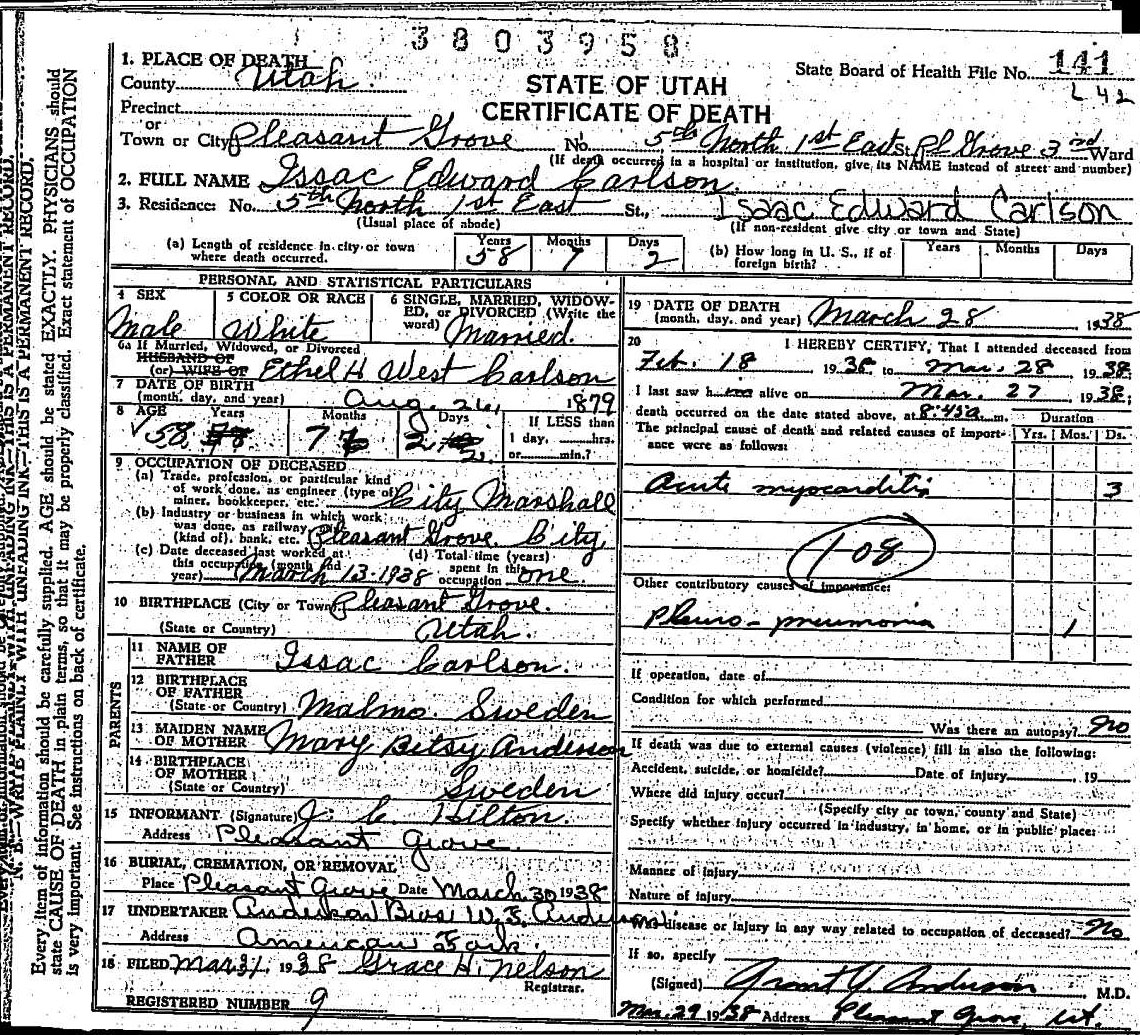 3803958
1. PLACE OF DEATH
County Utah
STATE OF UTAH
CERTIFICATE OF DEATH
State Board of Health File No. 141
L 42
Precinct
or
Town or City Pleasant Grove No. 5th North 1st East St. Pl Grove 3rd Ward
(If death occurred in a hospital or institution, give its NAME instead of street and number)
2. FULL NAME Issac Edward Carlson
3. Residence: No. 5th North 1st East St., Isaac Edward Carlson
(Usual place of abode) (If non-resident give city or town and State)
(a) Length of residence in city or town where death occurred. Years 58 Months 7 Days 2
(b) How long in U. S., if of foreign birth? Years Months Days
PERSONAL AND STATISTICAL PARTICULARS
4 SEX Male
5 COLOR OR RACE White
6 SINGLE, MARRIED, WIDOWED, or DIVORCED (Write the word) Married.
6a If Married, Widowed, or Divorced
HUSBAND OF
(or) WIFE OF Ethel H West Carlson
7 DATE OF BIRTH
(month, day, and year) Aug. 26, 1879
8 AGE Years 58 Months 7 Days 2
IF LESS than
1 day, hrs.
or min.?
9 OCCUPATION OF DECEASED
(a) Trade, profession, or particular kind
of work done, as engineer (type of
miner, bookkeeper, etc. City Marshall
(b) Industry or business in which work
was done, as railway,
(kind of), bank, etc. Pleasant Grove City
(c) Date deceased last worked at
this occupation (month and
year) March 13-1938
(d) Total time (years)
spent in this
occupation one
10 BIRTHPLACE (City or Town) Pleasant Grove.
(State or Country) Utah.
PARENTS
11 NAME OF
FATHER Issac Carlson.
12 BIRTHPLACE
OF FATHER
(State or Country) Malmo Sweden
13 MAIDEN NAME
OF MOTHER Mary Betsy Anderson
14 BIRTHPLACE
OF MOTHER
(State or Country) Sweden
15 INFORMANT (Signature) J. C. Hilton.
Address Pleasant Grove.
16 BURIAL, CREMATION, OR REMOVAL
Place Pleasant Grove Date March 30 1938
17 UNDERTAKER Anderson Bros. W. E. Anderson
Address American Fork.
18 FILED Mar 31, 1938 Grace H. Nelson
Registrar.
REGISTERED NUMBER 9
19 DATE OF DEATH
(month, day, and year) March 28 1938
20 I HEREBY CERTIFY, That I attended deceased from
Feb. 18 1938 to Mar. 28 1938
I last saw him alive on Mar. 27 1938;
death occurred on the date stated above, at 8:45 a. m.
The principal cause of death and related causes of importance were as follows:
Duration
Yrs. Mos. Ds.
Acute myocarditis 3
108
Other contributory causes of importance:
Pleuro-pneumonia 1
If operation, date of
Condition for which performed
Was there an autopsy? No
If death was due to external causes (violence) fill in also the following:
Accident, suicide, or homicide? Date of injury , 19
Where did injury occur?
(Specify city or town, county and State)
Specify whether injury occurred in industry, in home, or in public place:
Manner of injury
Nature of injury
Was disease or injury in any way related to occupation of deceased? No
If so, specify
(Signed) Grant Y. Anderson M.D.
Mar. 29 1938 Address Pleasant Grove, Ut.
N. B.—WRITE PLAINLY WITH UNFADING INK—THIS IS A PERMANENT RECORD.
Every item of information should be carefully supplied. AGE should be stated EXACTLY. PHYSICIANS should
state CAUSE OF DEATH in plain terms, so that it may be properly classified. Exact statement of OCCUPATION
is very important. See instructions on back of certificate.